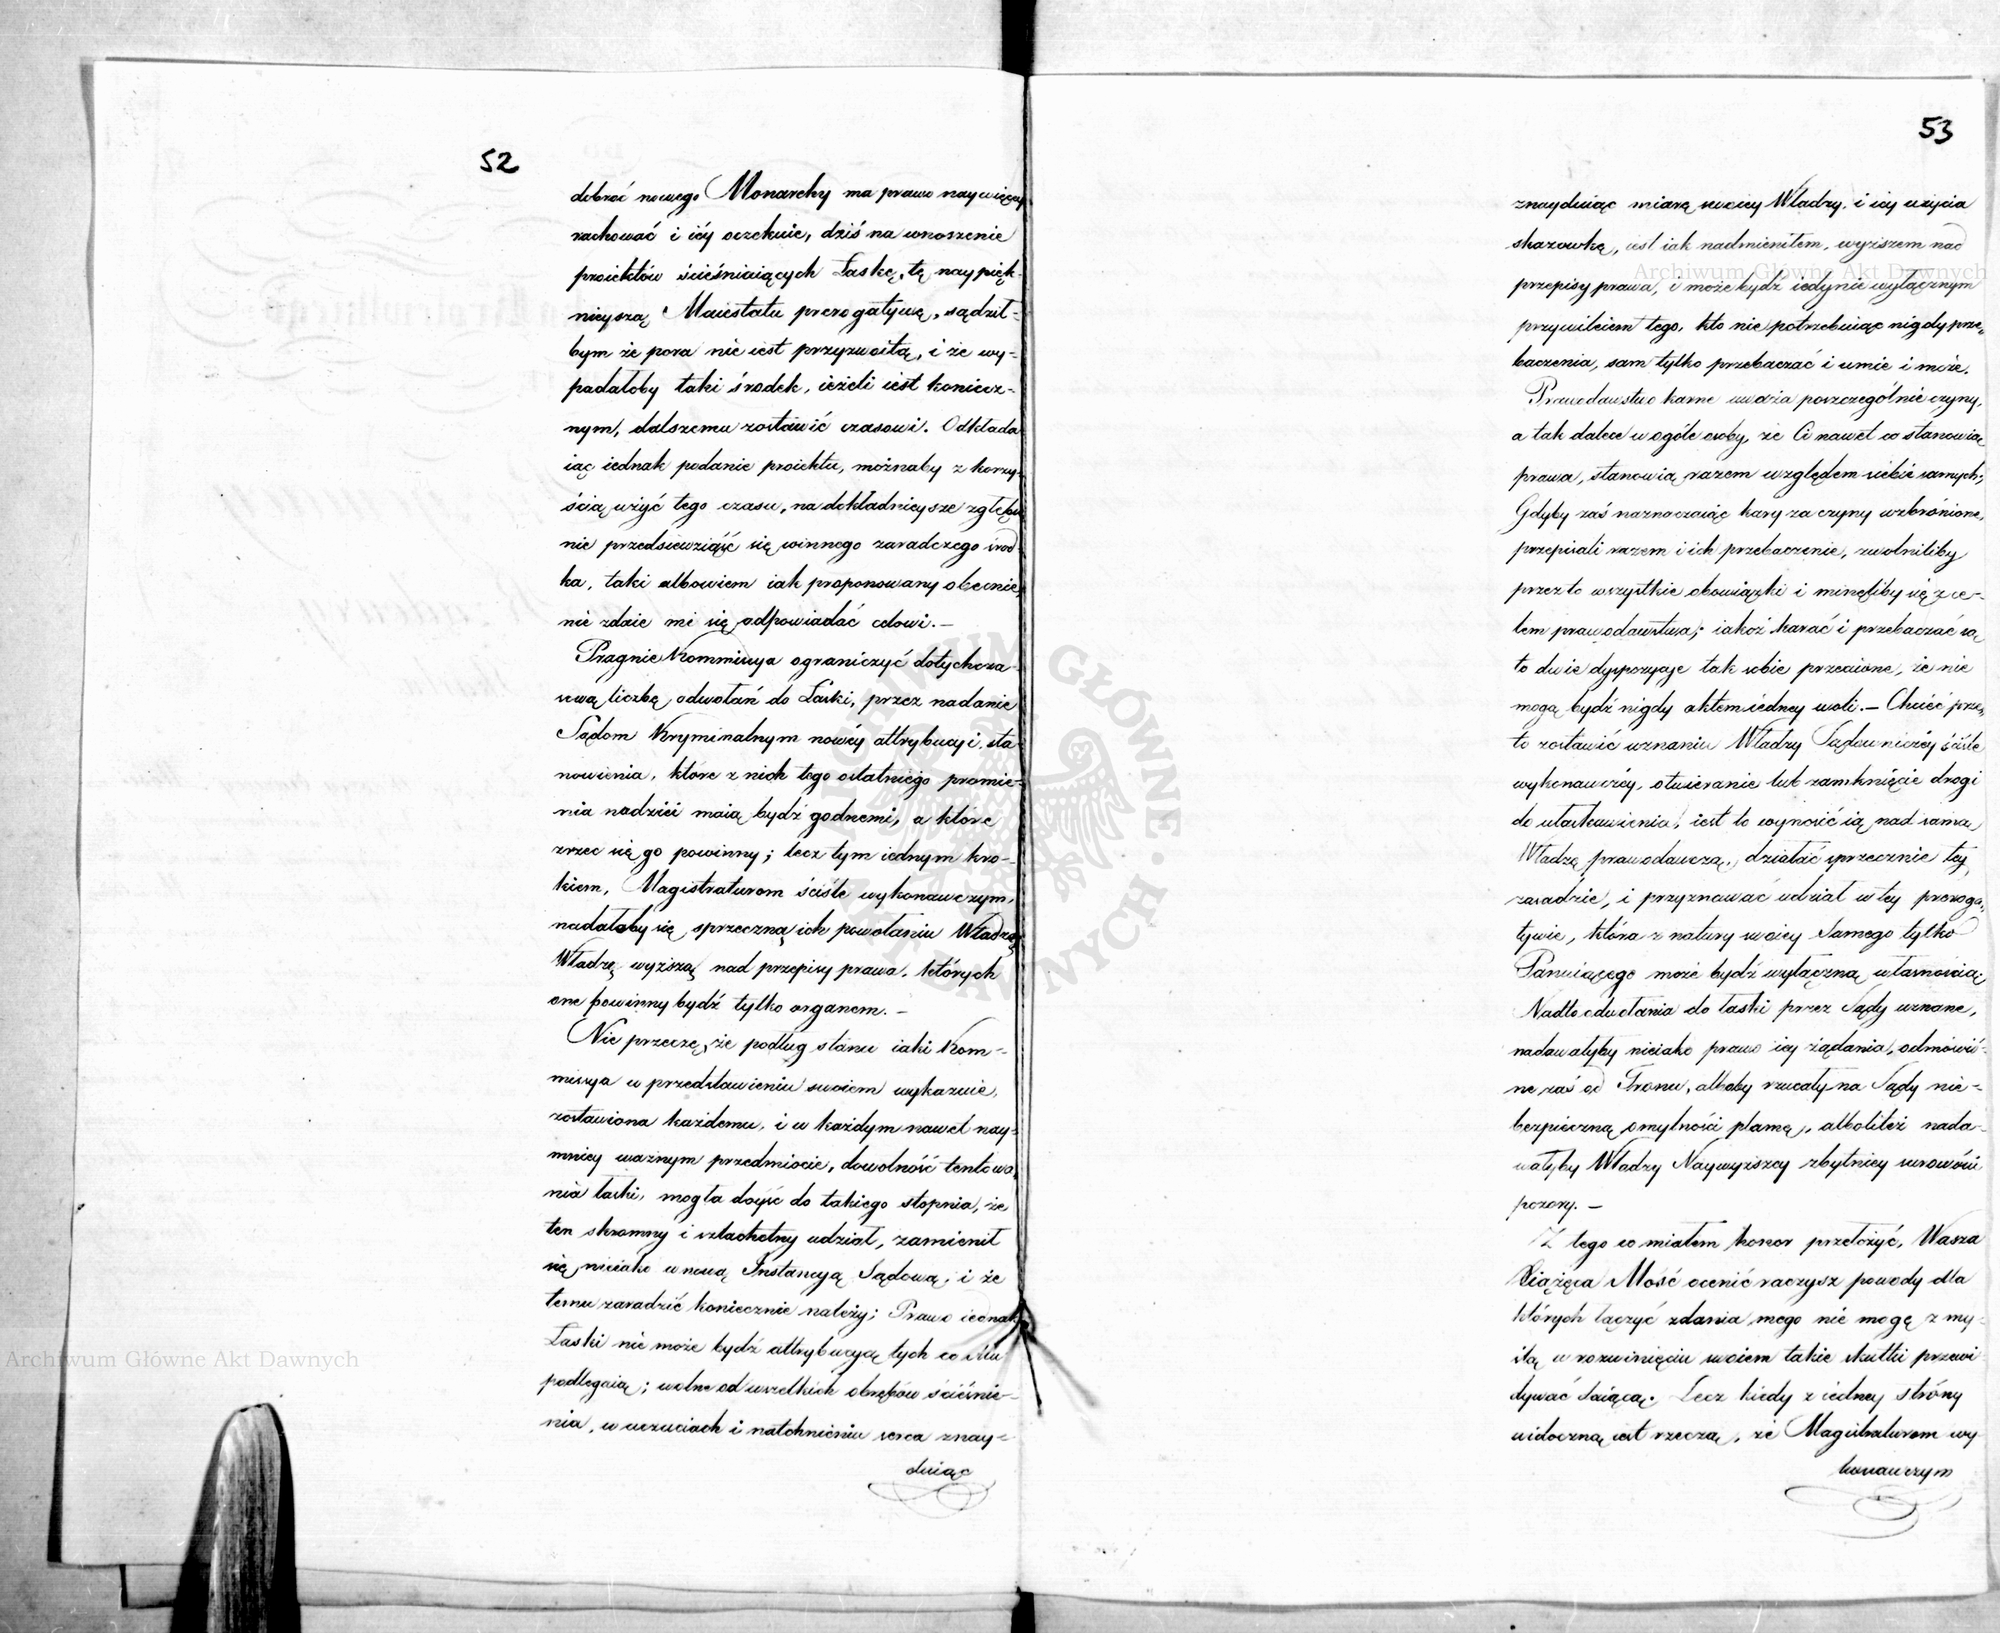 52
dobroć nowego Monarchy ma prawo naywięcey
rachować i iéy oczekuie, dziś na wnoszenie
proiektów ścieśniaiących Łaskę, tę naypięk-
nieyszą Maiestatu prerogatywę, sądził-
bym że pora nie iest przyzwoitą, i że wy-
padałoby taki środek, ieżeli iest koniecz-
nym, dalszemu zostawić czasowi. Odkłada
iąc iednak podanie proiektu, możnaby z korzy-
ścią użyć tego czasu, na dokładnieysze zgłębie
nie przedsiewziąść się winnego zaradczego środ-
ka, taki albowiem iak proponowany obecnie,
nie zdaie mi się odpowiadać celowi.—
Pragnie Kommissya ograniczyć dotychcza-
sową liczbę odwołań do Łaski, przez nadanie
Sądom Kryminalnym nowéy attrybucyi sta-
nowienia, które z nich tego ostatniego promie-
nia nadziei maią bydź godnemi, a które
zrzec się go powinny; lecz tym iednym kro-
kiem, Magistraturom ściśle wykonawczym,
nadałaby się sprzeczną ich powołaniu Władzę,
Władzę wyższą nad przepisy prawa, których
one powinny bydź tylko organem.—
Nie przeczę, że podług stanu iaki Kom-
missya w przedstawieniu swoiem wykazuie,
zostawiona każdemu, i w każdym nawet nay-
mniey ważnym przedmiocie, dowolność tentowa
nia łaski, mogła doyść do takiego stopnia, że
ten skromny i szlachetny udział, zamienił
się nieiako w nową Instancyą Sądową, i że
temu zaradzić koniecznie należy; Prawo iednak
Łaski nie może bydź attrybucyą tych co Mu
podlegaią; wolne od wszelkich obrębów ścieśnie-
nia, w uczuciach i natchnieniu serca znay-
duiąc
53
znayduiąc miarę swoiey Władzy, i iéy użycia
skazówkę, iest iak nadmieniłem, wyższem nad
przepisy prawa, i może bydź iedynie wyłącznym
przywileiem tego, kto nie potrzebuiąc nigdy prze-
baczenia, sam tylko przebaczać i umie i może.
Prawodawstwo karne uważa poszczególnie czyny,
a tak dalece w ogóle osoby, że Ci nawet co stanowią
prawa, stanowią razem względem siebie samych;
Gdyby zaś naznaczaiąc kary za czyny wzbronione,
przepisali razem i ich przebaczenie, zwolniliby
przez to wszystkie obowiązki i minęliby się z ce-
lem prawodawstwa; iakoż karać i przebaczać są
to dwie dyspozycye tak sobie przeciwne, że nie
mogą bydź nigdy aktem iedney woli.— Chcieć prze-
to zostawić uznaniu Władzy Sądowniczéy ściśle
wykonawczéy, otwieranie lub zamknięcie drogi
do ułaskawienia, iest to wynosić ią nad samą
Władzę prawodawczą, działać sprzecznie tey
zasadzie, i przyznawać udział w tey preroga-
tywie, która z natury swoiey Samego tylko
Panuiącego może bydź wyłączną własnością;
Nadto odwołania do łaski przez Sądy uznane,
nadawałyby nieiako prawo iey żądania, odmówio-
ne zaś od Tronu, alboby rzucały na Sądy nie-
bezpieczną omylności plamę, albo też nada-
wałyby Władzy Naywyższey zbytniey surowości
pozory.—
Z tego co miałem honor przełożyć, Wasza
Xiążęca Mość ocenić raczysz powody dla
których łączyć zdania mego nie mogę z my-
ślą w rozwinięciu swoiem takie skutki przewi-
dywać daiącą. Lecz kiedy z iedney strony
widoczną iest rzeczą, że Magistraturom wy
konawczym
Archiwum Główne Akt Dawnych
Archiwum Główne Akt Dawnych
ARCHIWUM GŁÓWNE AKT DAWNYCH